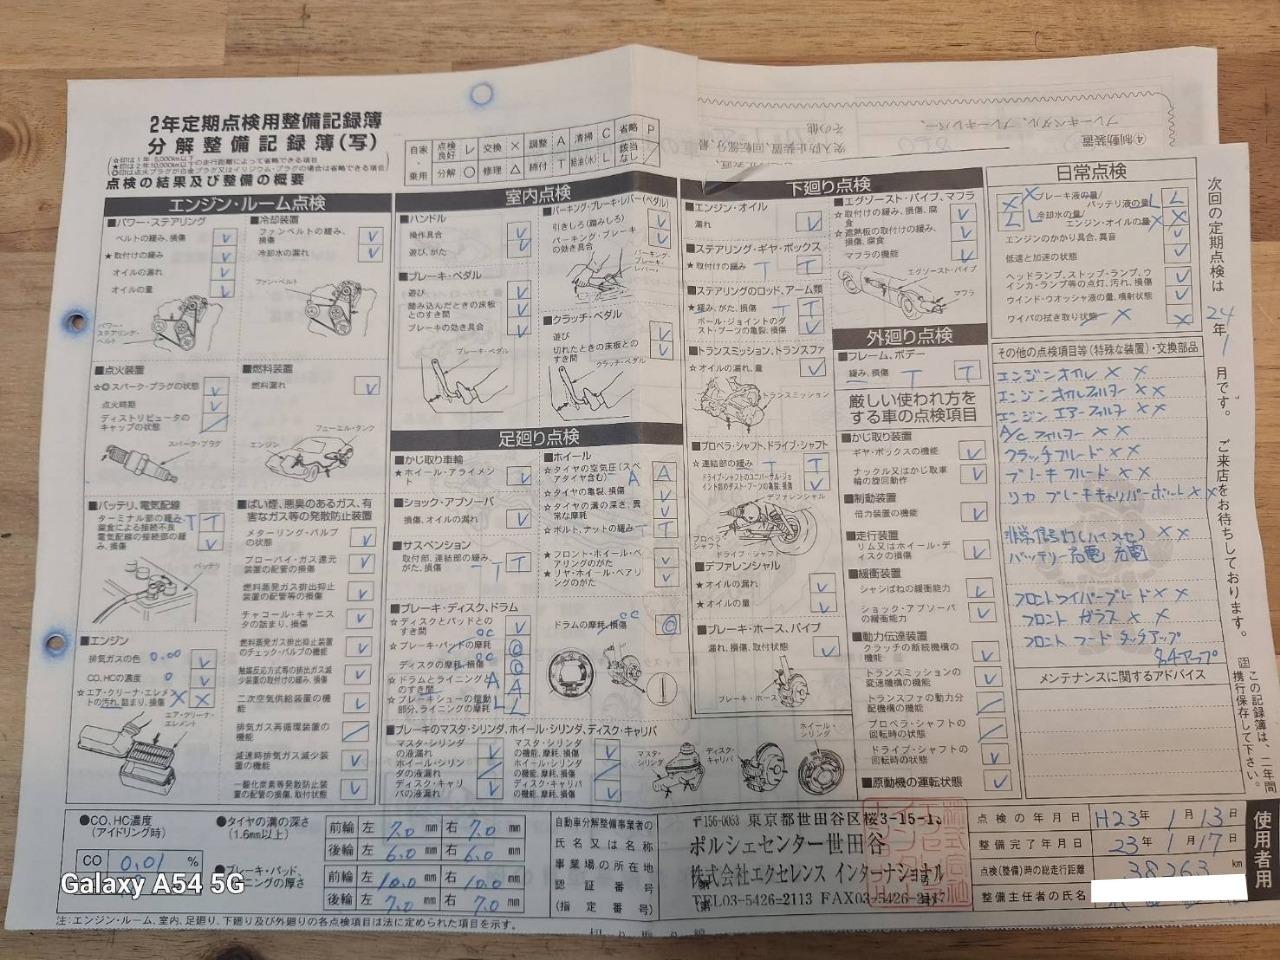 2年定期点検用整備記録簿
分解整備記録簿(写)
点検の結果及び整備の概要
自家
乗用
点検良好 レ 交換 × 調整 A 清掃 C 省略 P
分解 ○ 修理 △ 締付 T 給油(水) L 該当なし /
エンジン・ルーム点検
■パワー・ステアリング
ベルトの緩み、損傷
★取付けの緩み
オイルの漏れ
オイルの量
パワー・ステアリング・ベルト
■冷却装置
ファンベルトの緩み、損傷
冷却水の漏れ
ファン・ベルト
■点火装置
☆◎スパーク・プラグの状態
点火時期
ディストリビュータのキャップの状態
スパーク・プラグ
■燃料装置
燃料漏れ
フューエル・タンク
エンジン
■バッテリ、電気配線
ターミナル部の緩み、腐食による接続不良 T T
電気配線の接続部の緩み、損傷
バッテリ
■ばい煙、悪臭のあるガス、有害なガス等の発散防止装置
メターリング・バルブの状態
ブローバイ・ガス還元装置の配管の損傷
燃料蒸発ガス排出抑止装置の配管等の損傷
チャコール・キャニスタの詰まり、損傷
燃料蒸発ガス排出抑止装置のチェック・バルブの機能
触媒反応方式等の排出ガス減少装置の取付けの緩み、損傷
二次空気供給装置の機能
排気ガス再循環装置の機能
減速時排気ガス減少装置の機能
一酸化炭素等発散防止装置の配管の損傷、取付状態
■エンジン
排気ガスの色 0.00
CO、HCの濃度 0
☆エア・クリーナ・エレメントの汚れ、詰まり、損傷 X X
エア・クリーナ・エレメント
室内点検
■ハンドル
操作具合
遊び、がた
■ブレーキ・ペダル
遊び
踏み込んだときの床板とのすき間
ブレーキの効き具合
ブレーキ・ペダル
■パーキング・ブレーキ・レバー(ペダル)
引きしろ(踏みしろ)
パーキング・ブレーキの効き具合
パーキング・ブレーキ・レバー
■クラッチ・ペダル
遊び
切れたときの床板とのすき間
クラッチ・ペダル
足廻り点検
■かじ取り車輪
★ホイール・アライメント
■ショック・アブソーバ
損傷、オイルの漏れ
■サスペンション
取付部、連結部の緩み、がた、損傷 T T
■ホイール
☆タイヤの空気圧(スペアタイヤ含む) A A
☆タイヤの亀裂、損傷
☆タイヤの溝の深さ、異常な摩耗
☆ボルト、ナットの緩み T T
★フロント・ホイール・ベアリングのがた
★リヤ・ホイール・ベアリングのがた
■ブレーキ・ディスク、ドラム
☆ディスクとパッドとのすき間
☆ブレーキ・パッドの摩耗
ディスクの摩耗、損傷
☆ドラムとライニングとのすき間 A A
☆ブレーキシューの摺動部分、ライニングの摩耗 L L
ドラムの摩耗、損傷
■ブレーキのマスタ・シリンダ、ホイール・シリンダ、ディスク・キャリパ
マスタ・シリンダの液漏れ
ホイール・シリンダの液漏れ
ディスク・キャリパの液漏れ
マスタ・シリンダの機能、摩耗、損傷
ホイール・シリンダの機能、摩耗、損傷
ディスク・キャリパの機能、摩耗、損傷
マスタ・シリンダ
ディスク・キャリパ
ホイール・シリンダ
下廻り点検
■エンジン・オイル
漏れ
■ステアリング・ギヤ・ボックス
★取付けの緩み T T
■ステアリングのロッド、アーム類
★緩み、がた、損傷 T T
ボール・ジョイントのダスト・ブーツの亀裂、損傷
■トランスミッション、トランスファ
☆オイルの漏れ、量
トランスミッション
■プロペラ・シャフト、ドライブ・シャフト
☆連結部の緩み T T
ドライブ・シャフトのユニバーサル・ジョイント部のダスト・ブーツの亀裂、損傷
デファレンシャル
プロペラ・シャフト
ドライブ・シャフト
■デファレンシャル
★オイルの漏れ
★オイルの量
■ブレーキ・ホース、パイプ
漏れ、損傷、取付状態
ブレーキ・ホース
■エグゾースト・パイプ、マフラ
☆取付けの緩み、損傷、腐食
☆遮熱板の取付けの緩み、損傷、腐食
マフラの機能
エグゾースト・パイプ
マフラ
外廻り点検
■フレーム、ボデー
緩み、損傷 T T
厳しい使われ方をする車の点検項目
■かじ取り装置
ギヤ・ボックスの機能
ナックル又はかじ取車輪の旋回動作
■制動装置
倍力装置の機能
■走行装置
リム又はホイール・ディスクの損傷
■緩衝装置
シャシばねの緩衝能力
ショック・アブソーバの緩衝能力
■動力伝達装置
クラッチの断続機構の機能
トランスミッションの変速機構の機能
トランスファの動力分配機構の機能
プロペラ・シャフトの回転時の状態
ドライブ・シャフトの回転時の状態
■原動機の運転状態
日常点検
ブレーキ液の量/バッテリ液の量
冷却水の量/エンジン・オイルの量
エンジンのかかり具合、異音
低速と加速の状態
ヘッドランプ、ストップ・ランプ、ウインカ・ランプ等の点灯、汚れ、損傷
ウインド・ウオッシャ液の量、噴射状態
ワイパの拭き取り状態 X X
その他の点検項目等(特殊な装置)・交換部品
エンジンオイル X X
エンジンオイルフィルター X X
エンジンエアーフィルター X X
A/C フィルター X X
クラッチフルード X X
ブレーキフルード X X
リヤ ブレーキキャリパーボルト X X
バッテリー充電 充電
フロントワイパーブレード X X
フロント ガラス X X
フロント フード タッチアップ
タッチアップ
メンテナンスに関するアドバイス
次回の定期点検は 24年 1月です。ご来店をお待ちしております。
この記録簿は、二年間携行保存して下さい。
●CO、HC濃度
(アイドリング時)
CO 0.01 %
●タイヤの溝の深さ
(1.6mm以上)
前輪 左 7.0 mm 右 7.0 mm
後輪 左 6.0 mm 右 6.0 mm
前輪 左 10.0 mm 右 10.0 mm
後輪 左 7.0 mm 右 7.0 mm
自動車分解整備事業者の
氏名又は名称
事業場の所在地
認証番号
(指定番号)
〒156-0053 東京都世田谷区桜3-15-1
ポルシェセンター世田谷
株式会社エクセレンス インターナショナル
TEL03-5426-2113 FAX03-5426-2117
点検の年月日 H23年 1月13日
整備完了年月日 23年 1月17日
点検(整備)時の総走行距離 38263 km
整備主任者の氏名
使用者用
注:エンジン・ルーム、室内、足廻り、下廻り及び外廻りの各点検項目は法に定められた項目を示す。
切り取り線
④制動装置
ブレーキペダル、ブレーキレバー、
その他
Galaxy A54 5G